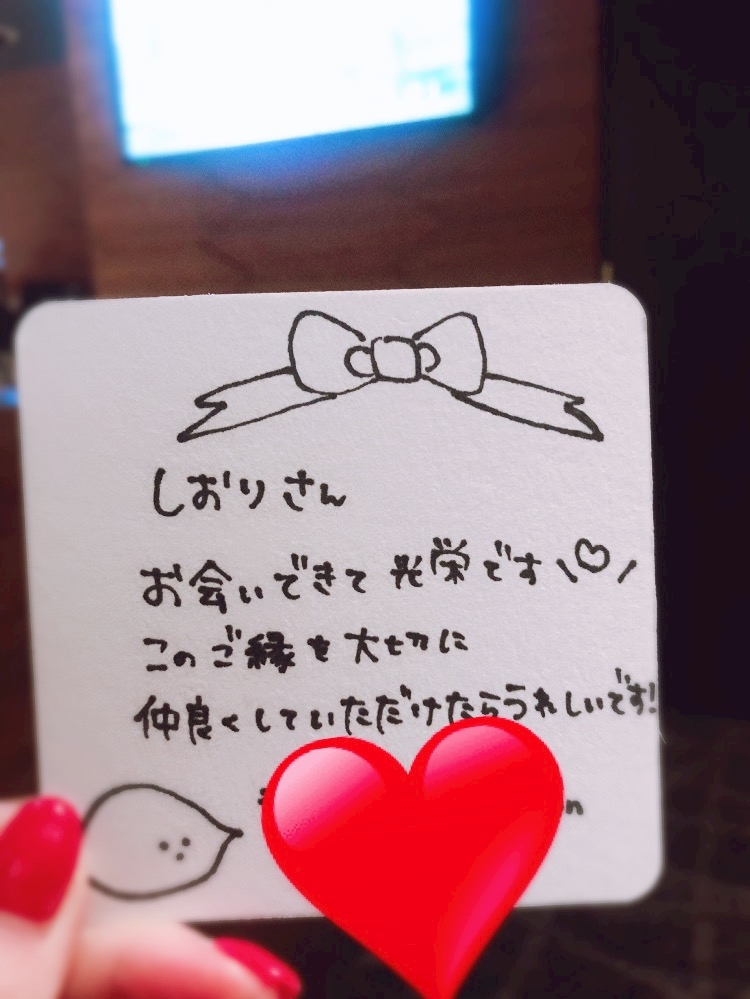 しおりさん
お会いできて光栄です\♡/
このご縁を大切に
仲良くしていただけたらうれしいです!